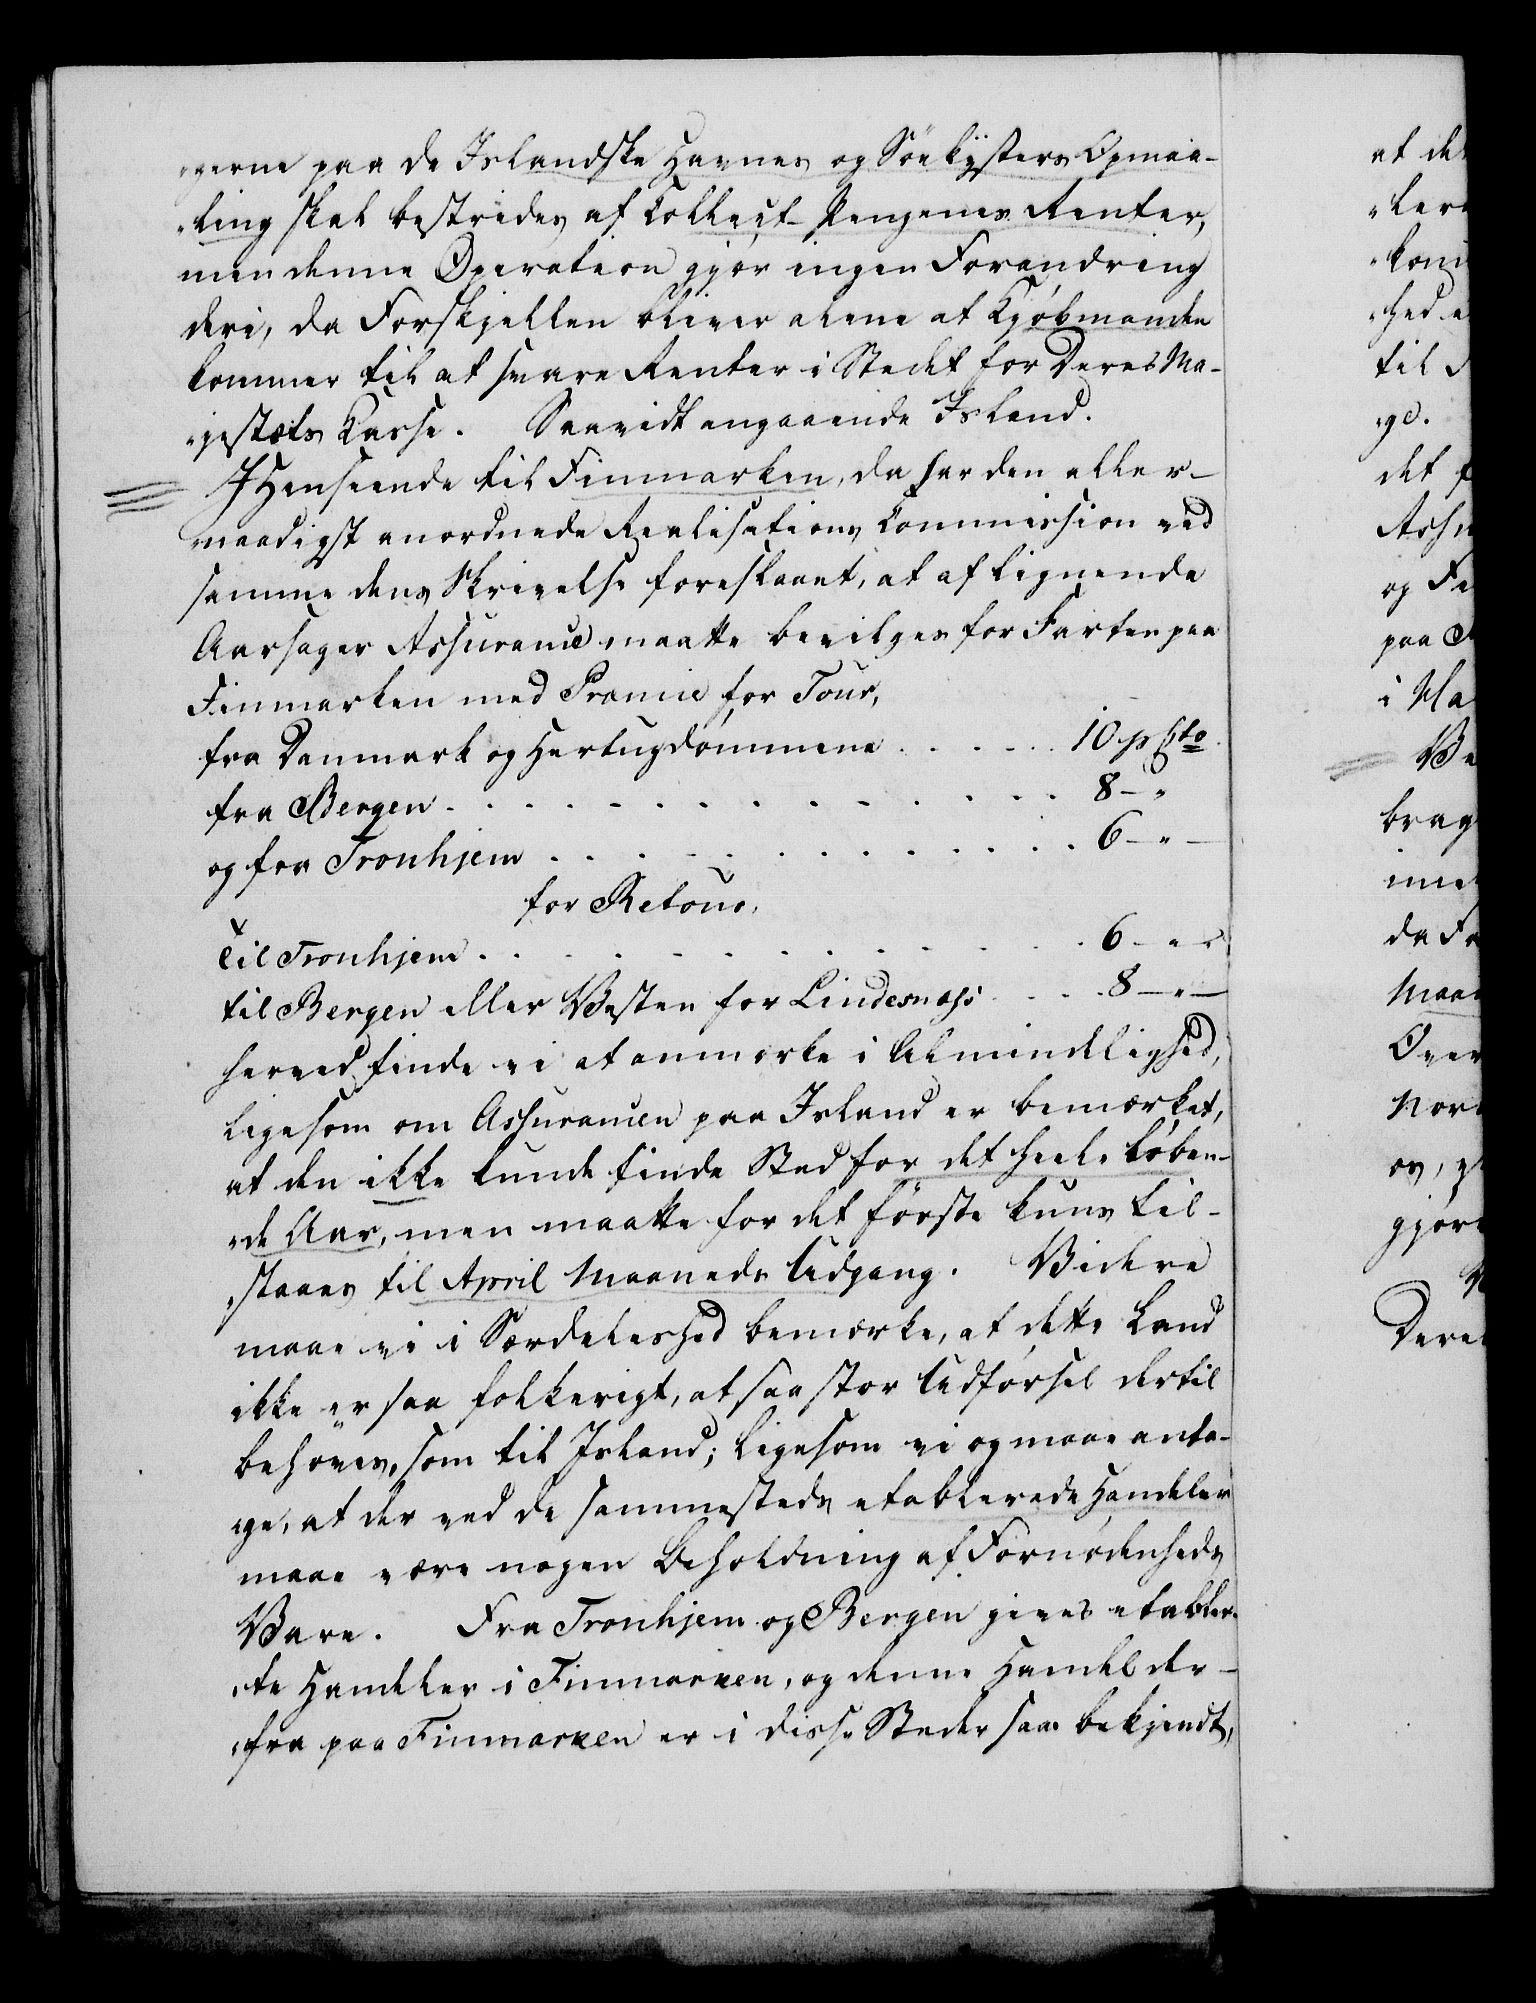 „gerne paa de Islandske Havnes og Söekysters Opmaa-
„ling skal bestrides af Collect-Pengenes Renter,
men denne Operation gjør ingen Forandring
deri, da Forskjellen bliver alene at Kjøbmanden
kommer til at svare Renter i Stedet for Deres Ma-
„jestæts Casse. Saavidt angaaende Island.
I Henseende til Finmarken, da har den aller-
naadigst anordnede Realisations Commission ved
samme dens Skrivelse foreslaaet, at af lignende
Aarsager Assurance maatte bevilges for Farten paa
Finmarken med Præmie for Tour,
fra Danmark og Hertugdømmene . . . . . 10 p Cto
fra Bergen . . . . . . . . . . . . 8 – „
og fra Tronhjem . . . . . . . . . . . 6 – „ –
for Retour,
til Tronhjem . . . . . . . . . . . 6 – „ –
til Bergen eller Vesten for Lindesnæss . . . 8 – „ –
herved finde vi at anmerke i Almindelighed,
ligesom om Assurancen paa Island er bemærket,
at den ikke kunde finde Sted for det heele løben-
„de Aar, men maatte for det første kuns til-
„staaes til April Maaneds Udgang. Videre
maae vi i Særdeleshed bemærke, at dette Land
ikke er saa folkerigt, at saa stor Udførsel dertil
behöves, som til Island; ligesom vi og maae anta-
ge, at der ved de sammesteds etablerede Handeler
maae være nogen Beholdning af Fornødenheds
Vare. Fra Tronhjem og Bergen gives etabler-
„te Handeler i Finmarken, og denne Handel der-
„fra paa Finmarken er i disse Steder saa bekjendt,
at de
„ler
„kom
„hed
til
„ge.
det
Assu
og Fi
paa
i Ma
Ve
brag
ime
da Fo
Maa
Over
Nor
os,
gjør
Dere